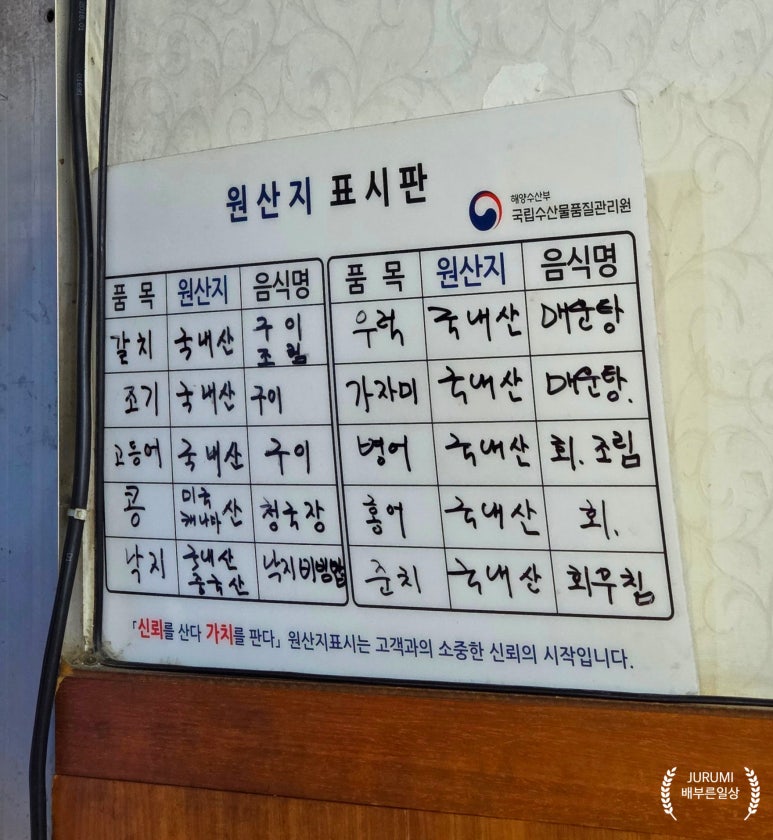 원산지 표시판
해양수산부
국립수산물품질관리원
품목 원산지 음식명
갈치 국내산 구이 조림
조기 국내산 구이
고등어 국내산 구이
콩 미국 캐나다산 청국장
낙지 국내산 중국산 낙지비빔밥
품목 원산지 음식명
우럭 국내산 매운탕
가자미 국내산 매운탕.
병어 국내산 회.조림
홍어 국내산 회.
준치 국내산 회무침
「신뢰를 산다 가치를 판다」 원산지표시는 고객과의 소중한 신뢰의 시작입니다.
JURUMI
배부른일상